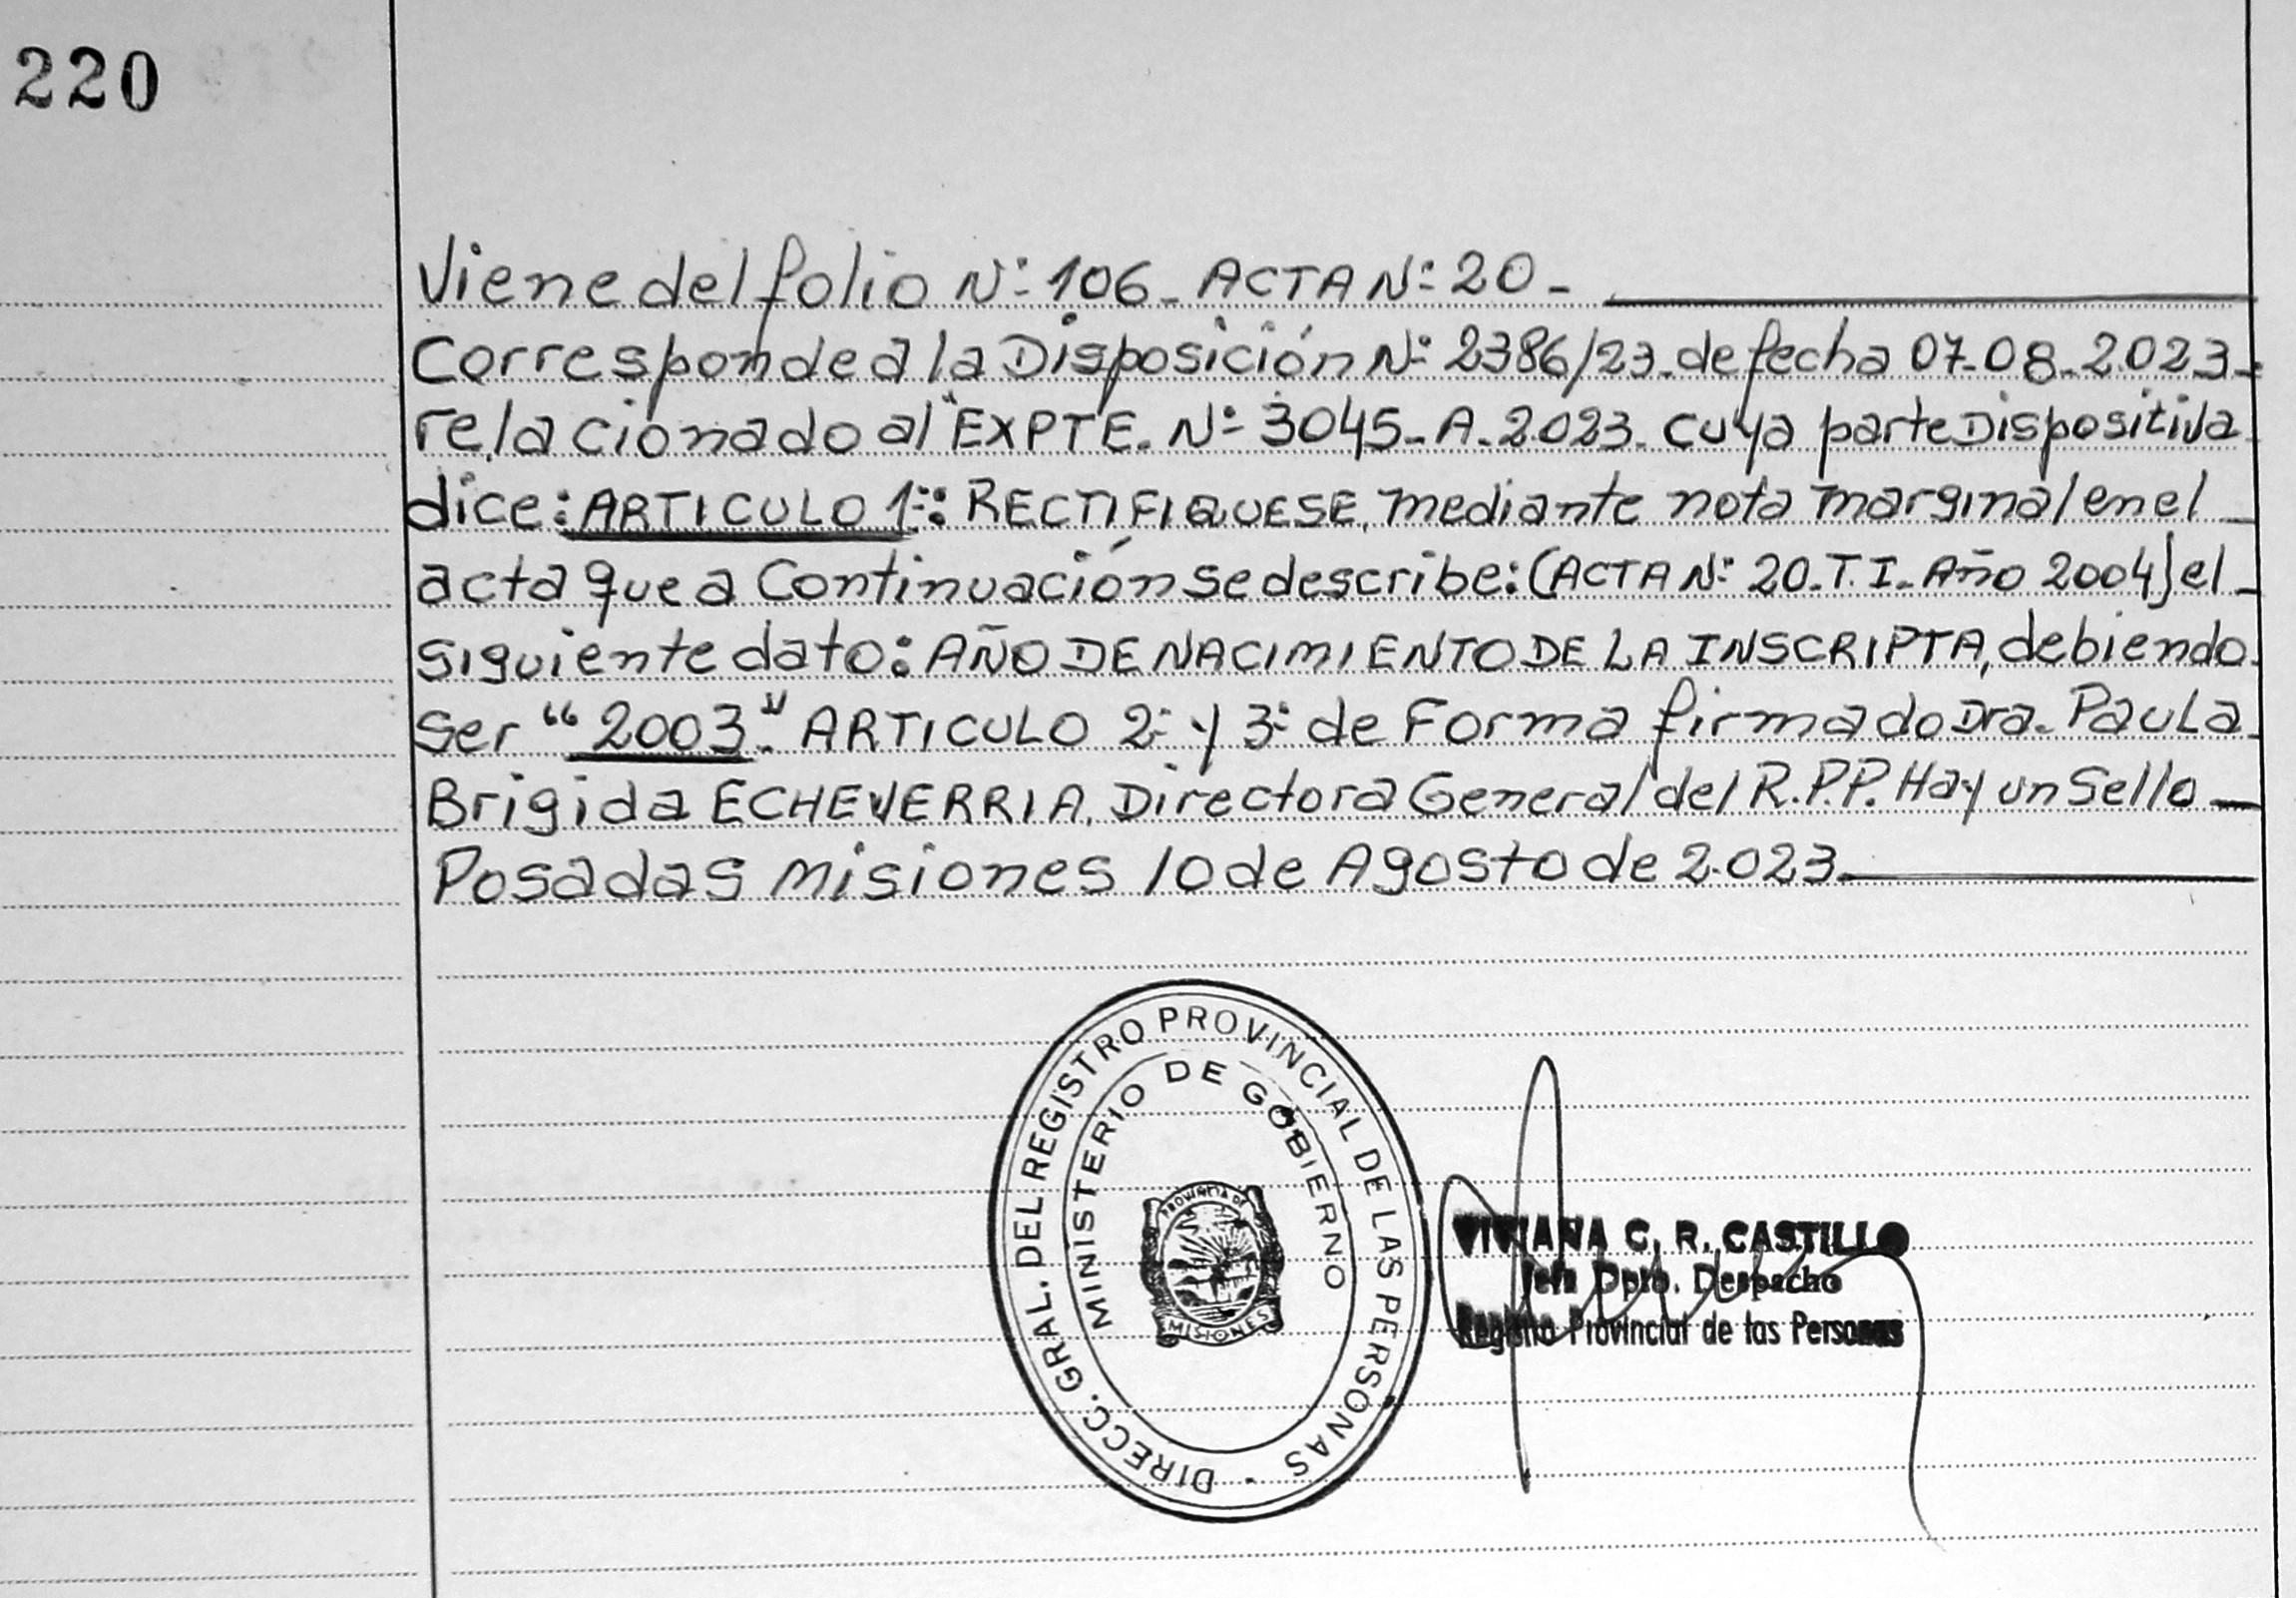 220
Viene del folio Nº 106 - ACTA Nº 20 -
Corresponde a la Disposición Nº 2386/23 - de fecha 07-08-2.023 -
relacionado al "EXPTE. Nº 3045 - A - 2.023 - cuya parte Dispositiva
dice: ARTICULO 1º: RECTIFIQUESE, mediante nota marginal en el -
acta que a Continuación se describe: (ACTA Nº 20 - T. I - Año 2004) el -
siguiente dato: AÑO DE NACIMIENTO DE LA INSCRIPTA, debiendo
ser "2003". ARTICULO 2º y 3º de Forma firmado Dra. PAULA
Brigida ECHEVERRIA. Directora General del R.P.P. Hay un Sello -
Posadas Misiones 10 de Agosto de 2.023.
DIRECC. GRAL. DEL REGISTRO PROVINCIAL DE LAS PERSONAS
MINISTERIO DE GOBIERNO
PROVINCIA DE
MISIONES
VIVIANA G. R. CASTILLO
Jefa Dpto. Despacho
Registro Provincial de las Personas